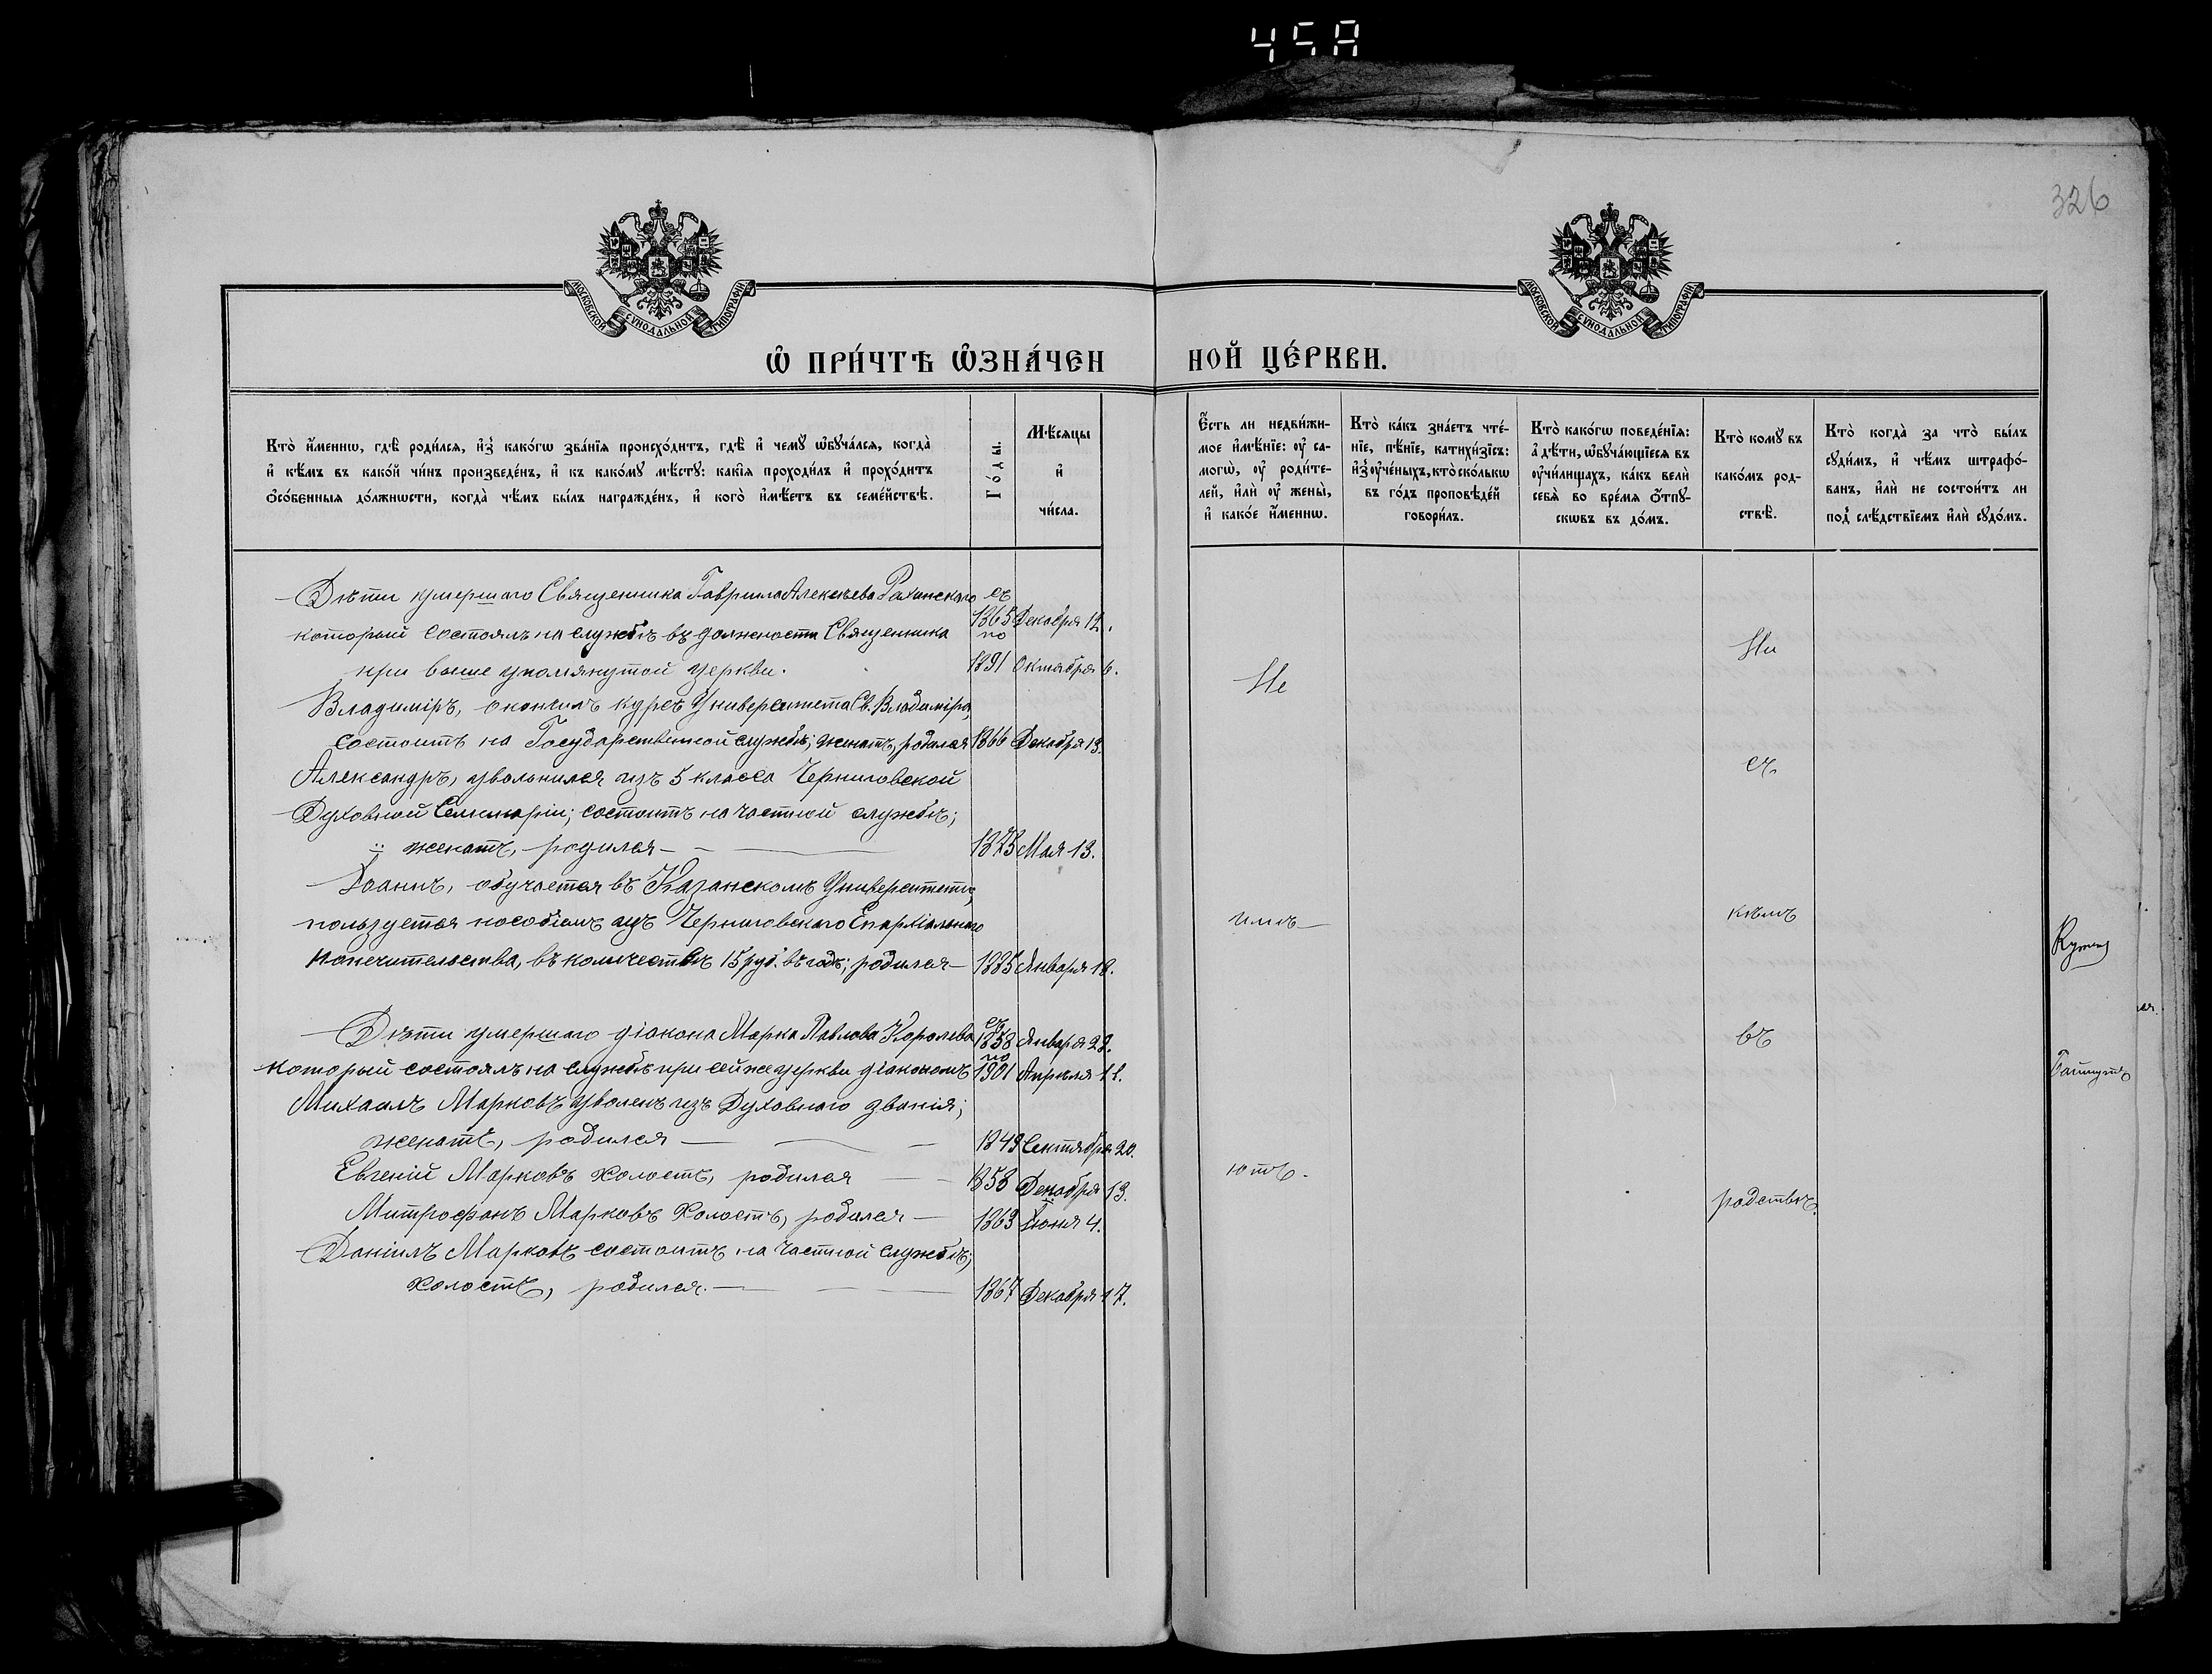 45A
326
МОСКОВСКОЙ СѴНОДАЛЬНОЙ ТИПОГРАФІИ
МОСКОВСКОЙ СѴНОДАЛЬНОЙ ТИПОГРАФІИ
Ѡ҆ ПРИ́ЧТѢ Ѡ҆ЗНА́ЧЕН НОЙ ЦЕ́РКВИ.
Кто̀ и҆́менно, гдѣ̀ роди́лсѧ, и҆з̾ како́гѡ зва́нїѧ происхо́дитъ, гдѣ̀ и҆ чемꙋ̀ ѡ҆бꙋча́лсѧ, когда̀
и҆ кѣ́мъ въ како́й чи́нъ произведе́нъ, и҆ къ како́мꙋ мѣ́стꙋ: какі̑ѧ проходи́лъ и҆ прохо́дитъ
ѻ҆со́бенныѧ до́лжнѡсти, когда̀ чѣ́мъ бы́лъ награжде́нъ, и҆ кого̀ и҆мѣ́етъ въ семе́йствѣ.
Го́ды.
Мѣ́сѧцы
и҆
чи́сла.
Е҆́сть ли недви́жи-
мое и҆мѣ́нїе: ᲂу҆ са-
могѡ̀, ᲂу҆ роди́те-
лей, и҆лѝ ᲂу҆ жены̀,
и҆ како́е и҆́меннѡ.
Кто̀ ка́къ зна́етъ чте́-
нїе, пѣ́нїе, катихи́зїсъ:
и҆з̾ ᲂу҆че́ныхъ, кто̀ ско́лькѡ
въ го́дъ проповѣ́дей
говори́лъ.
Кто̀ како́гѡ поведе́нїѧ:
а҆ дѣ́ти, ѡ҆бꙋча́ющїесѧ въ
ᲂу҆чи́лищахъ, ка́къ велѝ
себѧ̀ во вре́мѧ ѻ҆тпꙋ-
скѡвъ въ до́мъ.
Кто̀ комꙋ̀ въ
како́мъ род-
ствѣ̀.
Кто̀ когда̀ за что̀ бы́лъ
сꙋди́мъ, и҆ чѣ́мъ штрафо́-
ванъ, и҆лѝ не состои́тъ ли
под̾ слѣ́дствїемъ и҆лѝ сꙋдо́мъ.
Дѣти умершаго Священника Гавріила Алексѣева съ
который состоялъ на службѣ въ должности Священника 1865 Декабря 12. по
при выше упомянутой церкви. 1891 Октября 6.
Владиміръ, окончилъ курсъ Университета Св. Владиміра,
состоитъ на Государственной службѣ; женатъ, родился 1866 Декабря 13.
Александръ, уволился изъ 5 класса Черниговской
Духовной Семинаріи; состоитъ на частной службѣ;
женатъ, родился — 1875 Мая 13.
Іоаннъ, обучается въ Казанскомъ Университетѣ,
пользуется пособіемъ изъ Черниговскаго Епархіальнаго
Попечительства, въ количествѣ 15 руб. въ годъ; родился — 1885 Января 18.
Дѣти умершаго діакона Марка Павлова Королева съ 1858 Января 28.
который состоялъ на службѣ при сей же церкви діакономъ по 1901 Апрѣля 11.
Михаилъ Марковъ уволенъ изъ Духовнаго званія;
женатъ, родился — 1849 Сентября 20.
Евгеній Марковъ холостъ, родился — 1858 Декабря 13.
Митрофанъ Марковъ холостъ, родился — 1863 Іюня 4.
Даніилъ Марковъ состоитъ на частной службѣ;
холостъ, родился. — 1867 Декабря 17.
Не
имѣ—
ютъ.
Ни
съ
кѣмъ
въ
родствѣ.